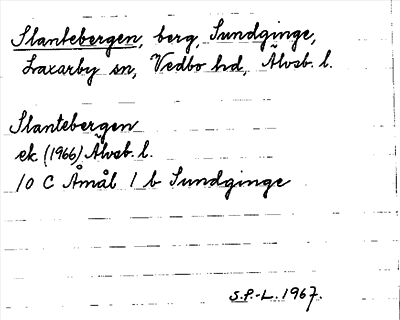 Slantebergen, berg, Sundginge,
Laxarby sn, Vedbo hd, Älvsb. l.
Slantebergen
ek. (1966) Älvsb. l.
10 C Åmål 1 b Sundginge
S.P.-L. 1967.